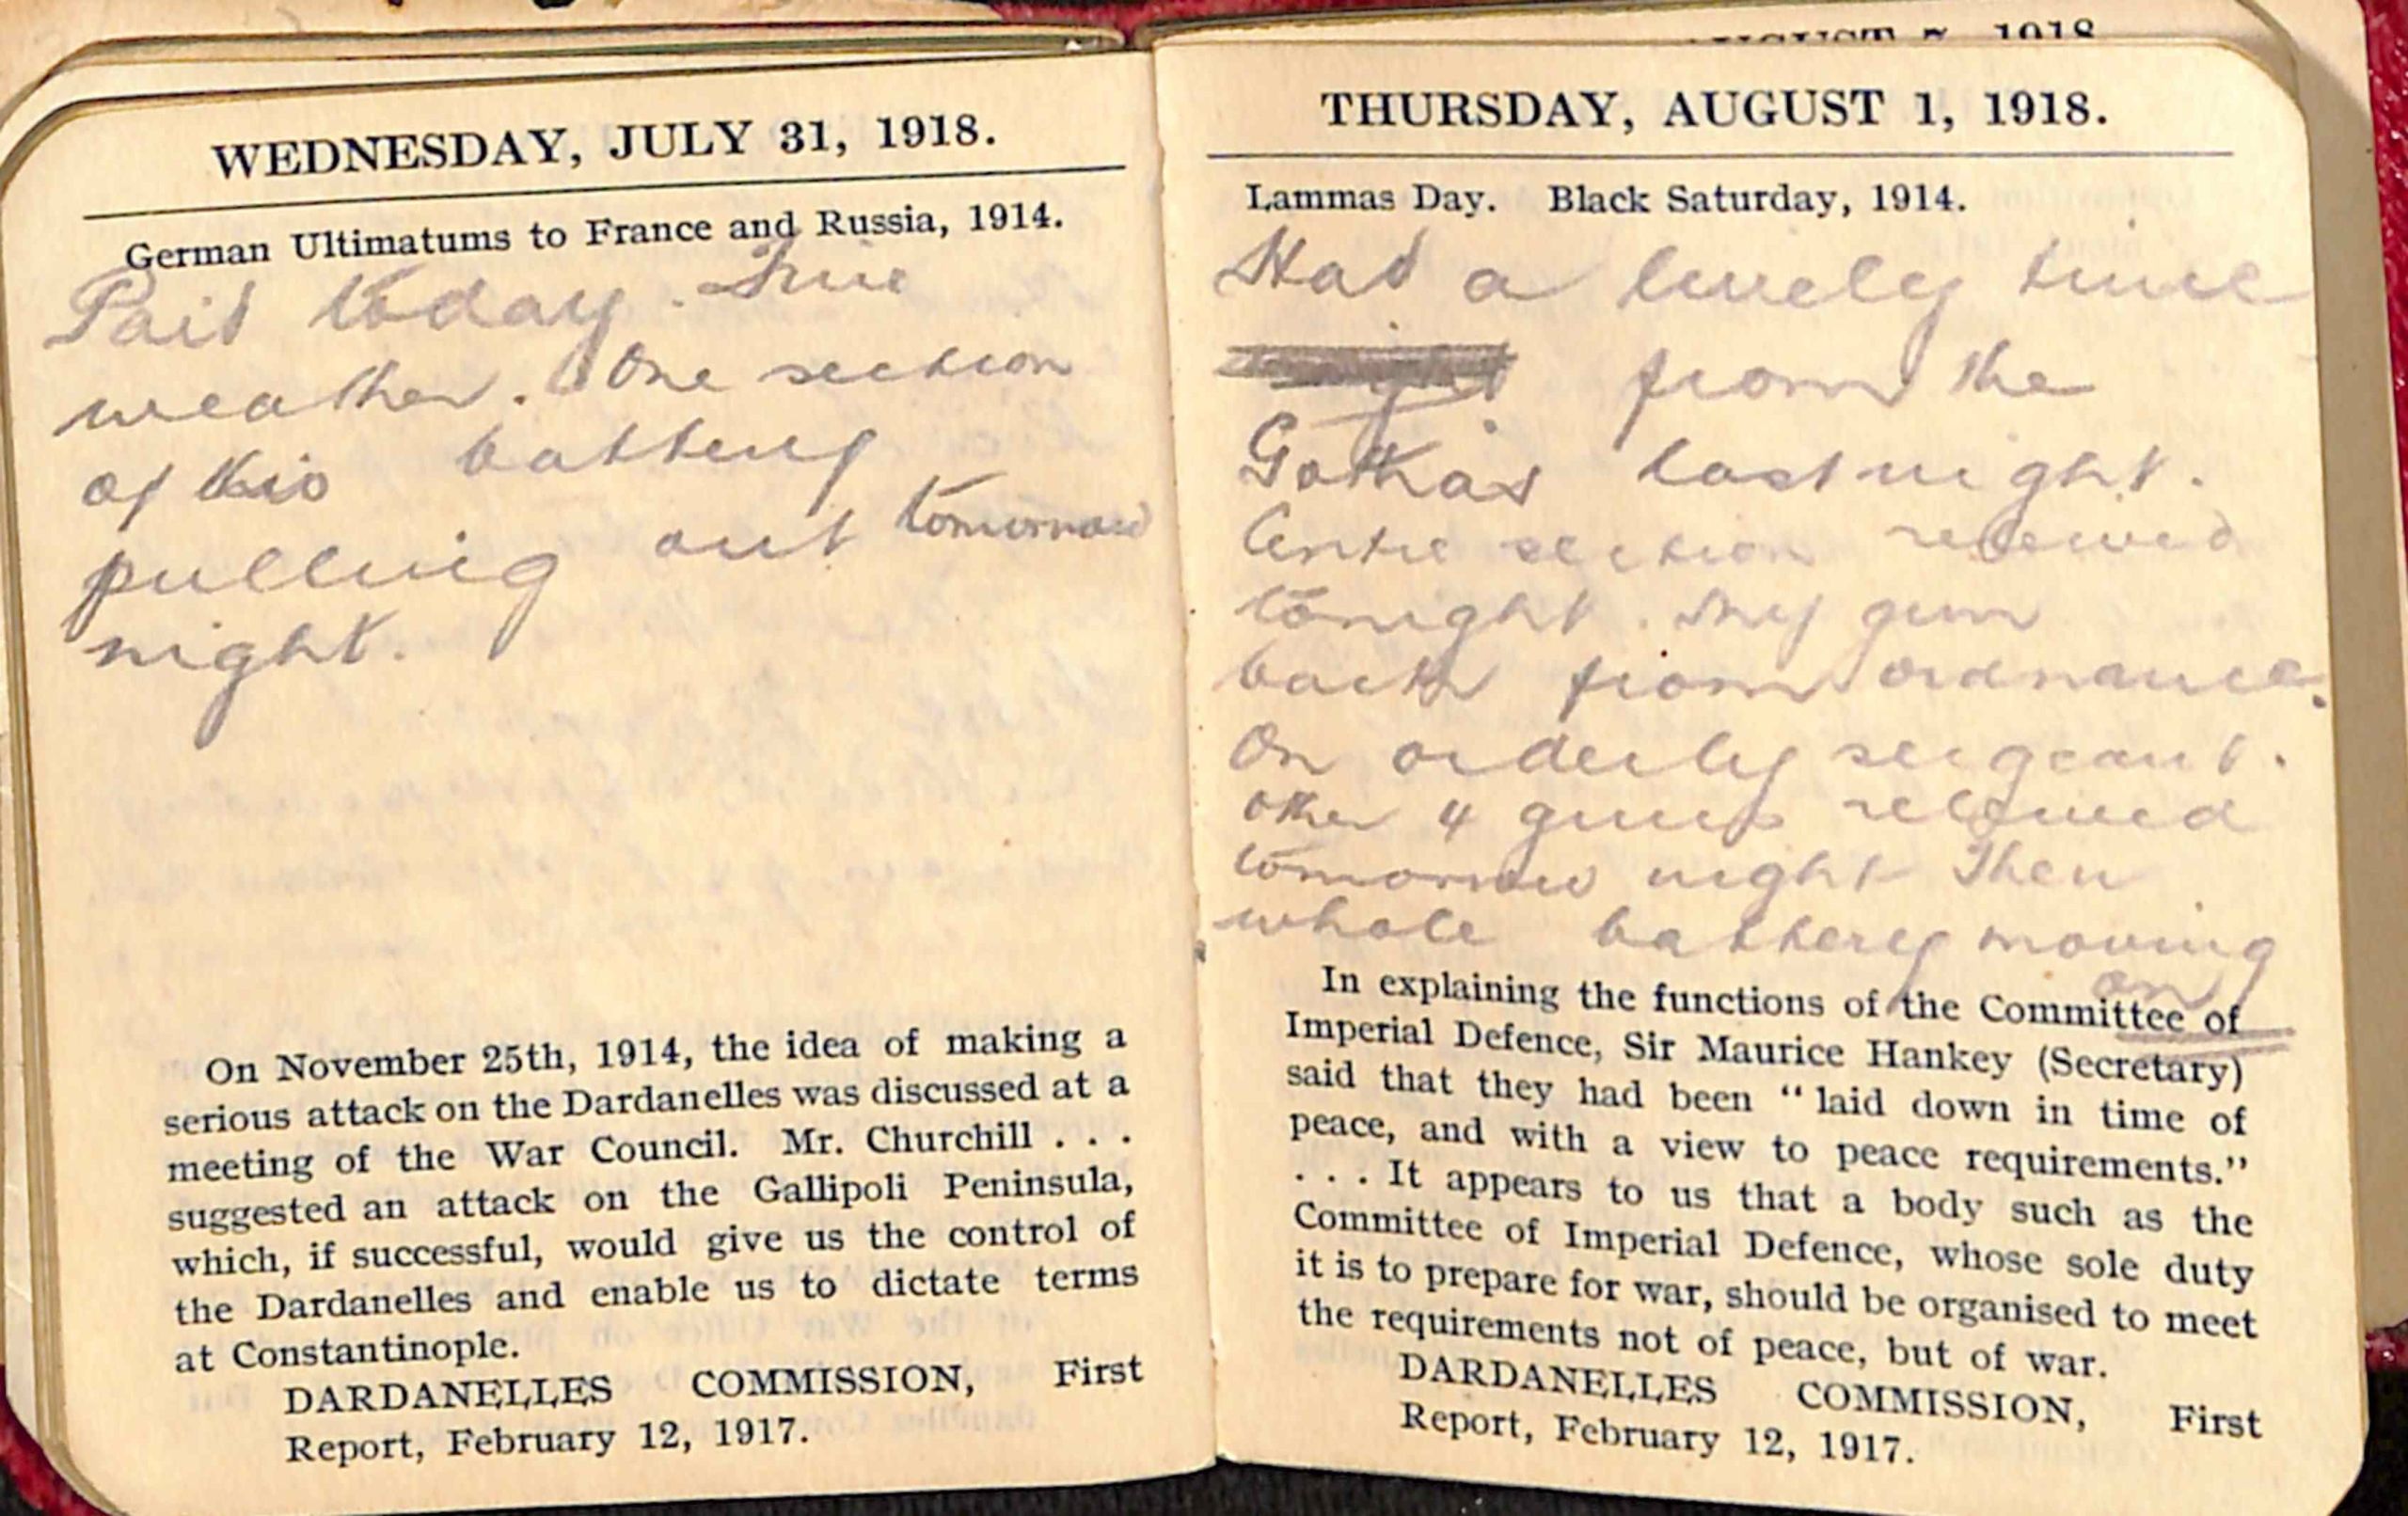 WEDNESDAY, JULY 31, 1918.
German Ultimatums to France and Russia, 1914.
Paid today. Fine
weather. One section
of this battery
pulling out tomorrow
night.
On November 25th, 1914, the idea of making a
serious attack on the Dardanelles was discussed at a
meeting of the War Council. Mr. Churchill . . .
suggested an attack on the Gallipoli Peninsula,
which, if successful, would give us the control of
the Dardanelles and enable us to dictate terms
at Constantinople.
DARDANELLES COMMISSION, First
Report, February 12, 1917.
AUGUST 7, 1918
THURSDAY, AUGUST 1, 1918.
Lammas Day. Black Saturday, 1914.
Had a lively time
from the
Gothas last night.
Centre section relieved
tonight. My gun
back from ordnance.
On orderly sergeant.
Other 4 guns relieved
tomorrow night Then
whole battery moving
on
In explaining the functions of the Committee of
Imperial Defence, Sir Maurice Hankey (Secretary)
said that they had been “laid down in time of
peace, and with a view to peace requirements.”
. . . It appears to us that a body such as the
Committee of Imperial Defence, whose sole duty
it is to prepare for war, should be organised to meet
the requirements not of peace, but of war.
DARDANELLES COMMISSION, First
Report, February 12, 1917.